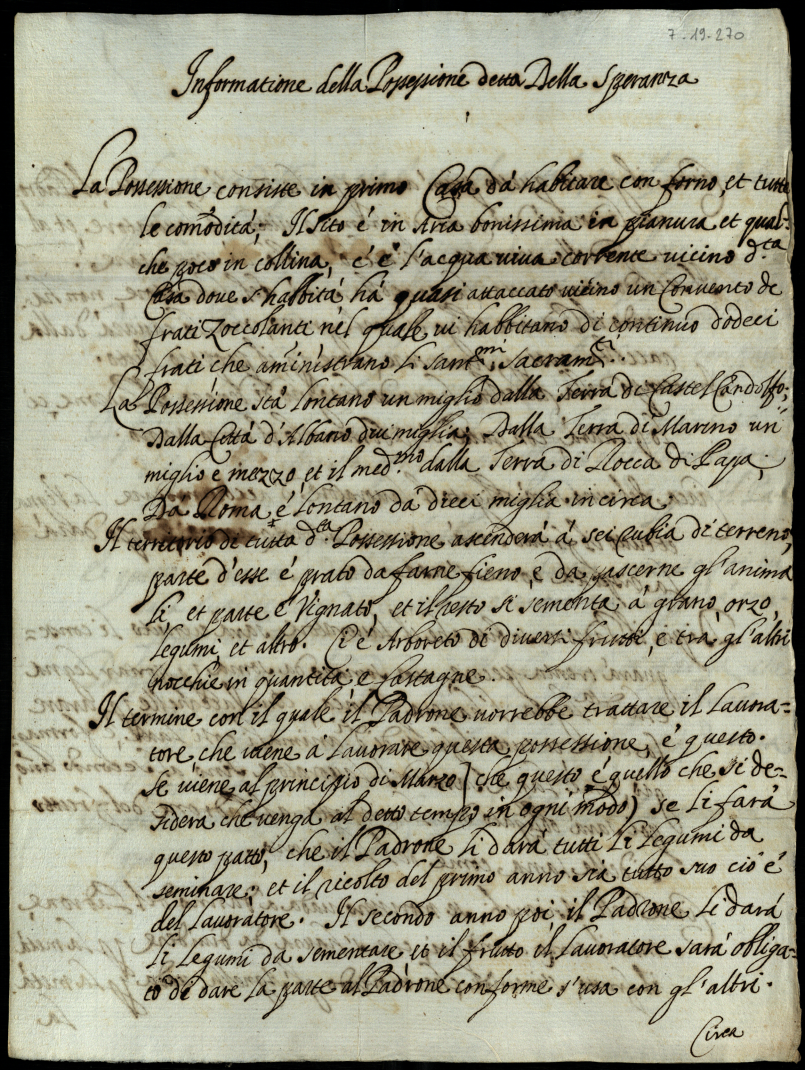 7-19-270
Informatione della Possessione detta Della Speranza
La Possessione consiste in primo Casa dà habitare con forno, et tutte
le comodità; Il sito è in Aria bonissima in pianura et qual=
che poco in collina, c'è l'acqua viva corrente vicino d.ta
Casa dove s'habbità há quasi attaccato vicino un Convento de
frati Zoccolanti nel quale vi habbitano di continuo dodeci
frati che aministrano li sant.mi Sacram.ti.
La Possessione stà lontano un miglio dalla Terra di Castel Gandolfo;
Dalla Città d'Albano dui miglia; Dalla Terra di Marino un
miglio e mezzo, et il med.mo dalla Terra di Rocca di Papa;
Da Roma è lontano da dieci miglia in circa.
Il territorio di tutta d.ta Possessione ascenderá á sei Rubia di terreno,
parte d'esse é prato da farne fieno, e da pascerne gl'anima
li, et parte é Vignato, et il resto si sementa á grano, orzo,
legumi, et altro. Ci é Arboreto di diversi frutti, e trá gl'altri
nocchie in quantità e Castagne.
Il termine con il quale il Padrone vorrebbe trattare il Lavora=
tore che viene á Lavorare questa possessione, é questo.
Se viene al principio di Marzo (che questo é quello che si de=
sidera che venga al detto tempo in ogni modo) se li fará
questo patto, che il Padrone li dará tutti li legumi da
seminare; et il ricolto del primo anno sia tutto suo cio é
del Lavoratore. Il secondo anno poi il Padrone li dará
li legumi da sementare et il frutto il Lavoratore sará obliga=
to di dare la parte al Padrone conforme s'usa con gl'altri.
Circa